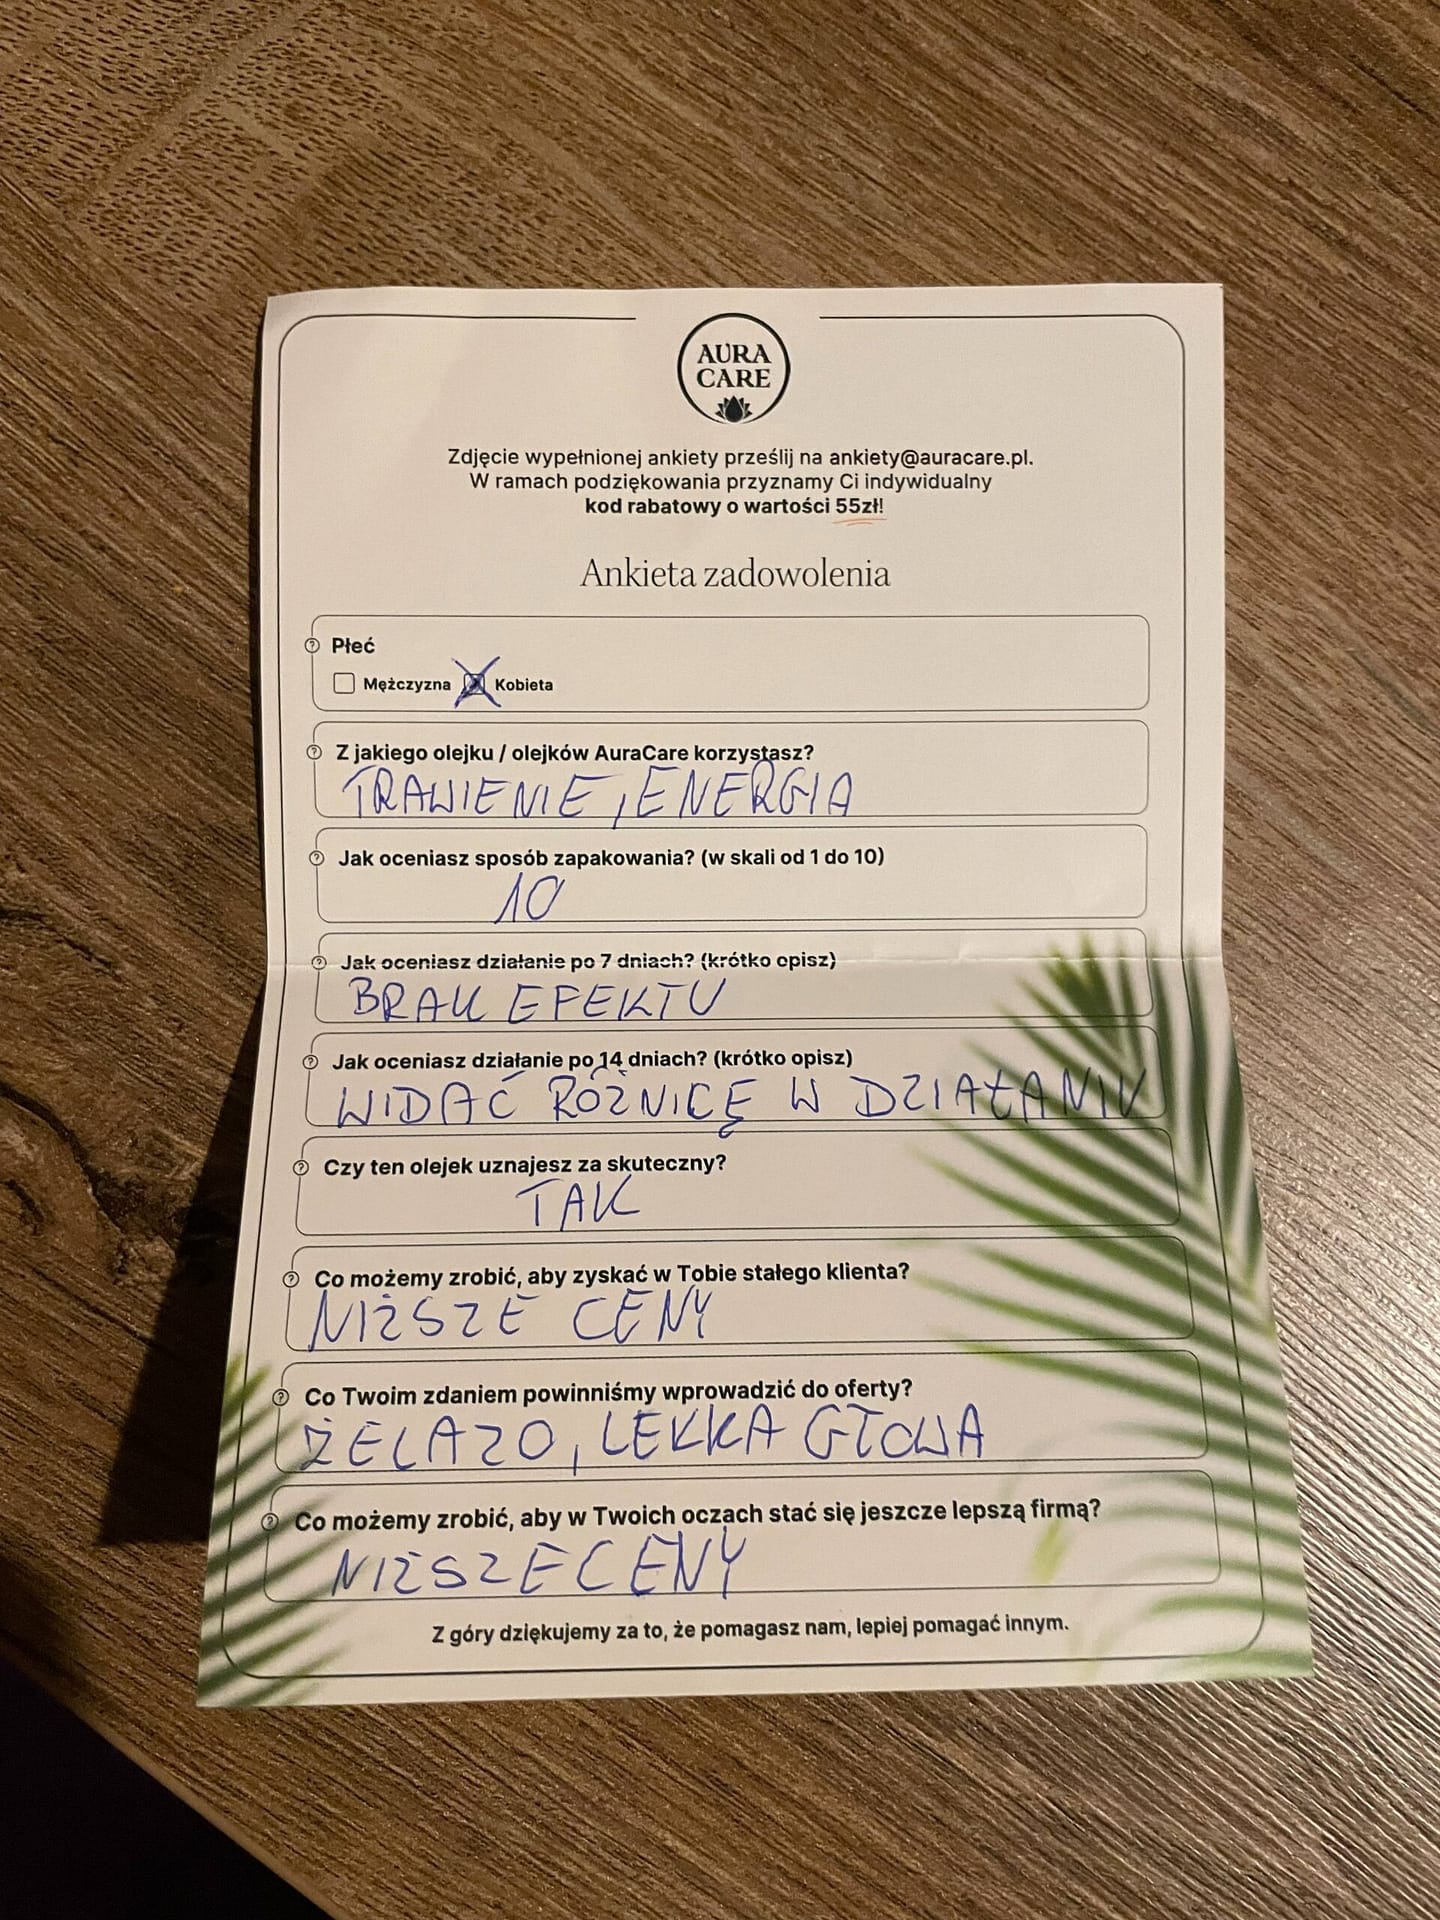 AURA
CARE
Zdjęcie wypełnionej ankiety prześlij na ankiety@auracare.pl.
W ramach podziękowania przyznamy Ci indywidualny
kod rabatowy o wartości 55zł!
Ankieta zadowolenia
Płeć
Mężczyzna Kobieta
Z jakiego olejku / olejków AuraCare korzystasz?
TRAWIENIE, ENERGIA
Jak oceniasz sposób zapakowania? (w skali od 1 do 10)
10
Jak oceniasz działanie po 7 dniach? (krótko opisz)
BRAK EFEKTU
Jak oceniasz działanie po 14 dniach? (krótko opisz)
WIDAĆ RÓŻNICĘ W DZIAŁANIU
Czy ten olejek uznajesz za skuteczny?
TAK
Co możemy zrobić, aby zyskać w Tobie stałego klienta?
NIŻSZE CENY
Co Twoim zdaniem powinniśmy wprowadzić do oferty?
ŻELAZO, LEKKA GŁOWA
Co możemy zrobić, aby w Twoich oczach stać się jeszcze lepszą firmą?
NIŻSZE CENY
Z góry dziękujemy za to, że pomagasz nam, lepiej pomagać innym.